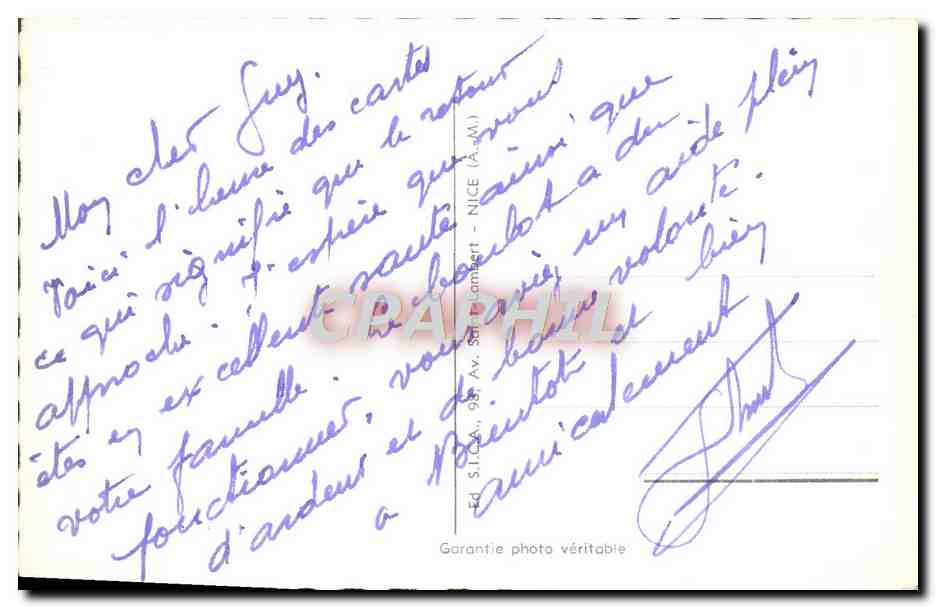 Mon cher Guy.
Voici l'heure des cartes
ce qui signifie que le retour
approche. J'espère que vous
êtes en excellente santé ainsi que
votre famille. Le boulot a du
fonctionner, vous aviez un aide plein
d'ardeur et de bonne volonté.
a Bientôt et bien
amicalement
Ed S.I.C.A., 98, Av. Saint-Lambert - NICE (A.-M.)
Garantie photo véritable
CPAPHIL